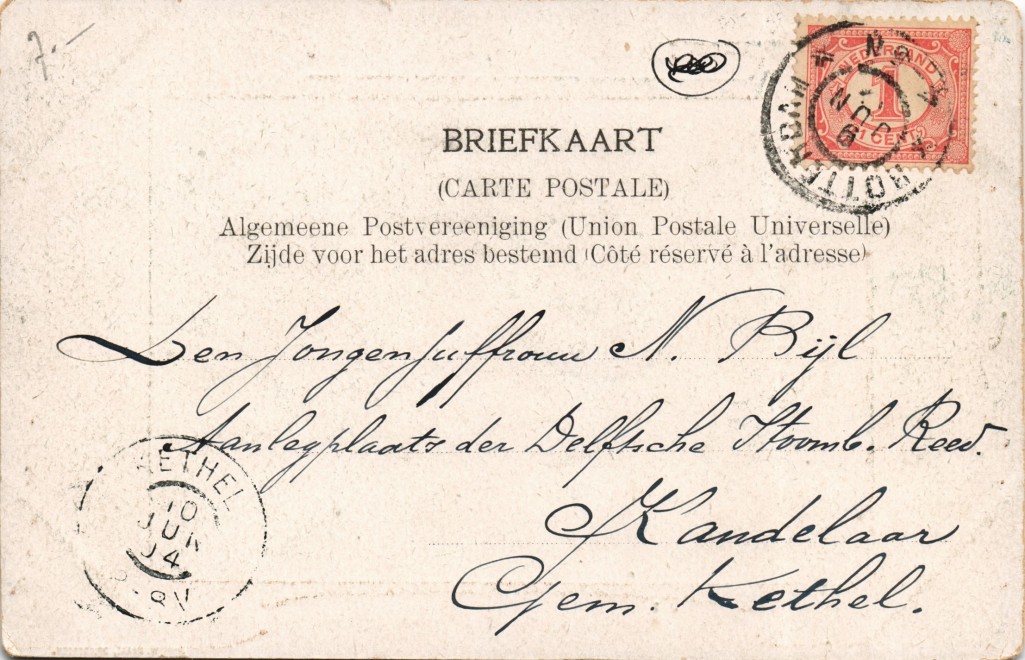 7.-
NEDERLAND
1
1 CENT
ROTTERDAM
BRIEFKAART
(CARTE POSTALE)
Algemeene Postvereeniging (Union Postale Universelle)
Zijde voor het adres bestemd (Côté réservé à l'adresse)
Den Jongenjuffrouw N. Bijl
Aanlegplaats der Delftsche Stoomb. Reed.
Kandelaar
Gem. Kethel.
KETHEL
10
JUN
04
8V